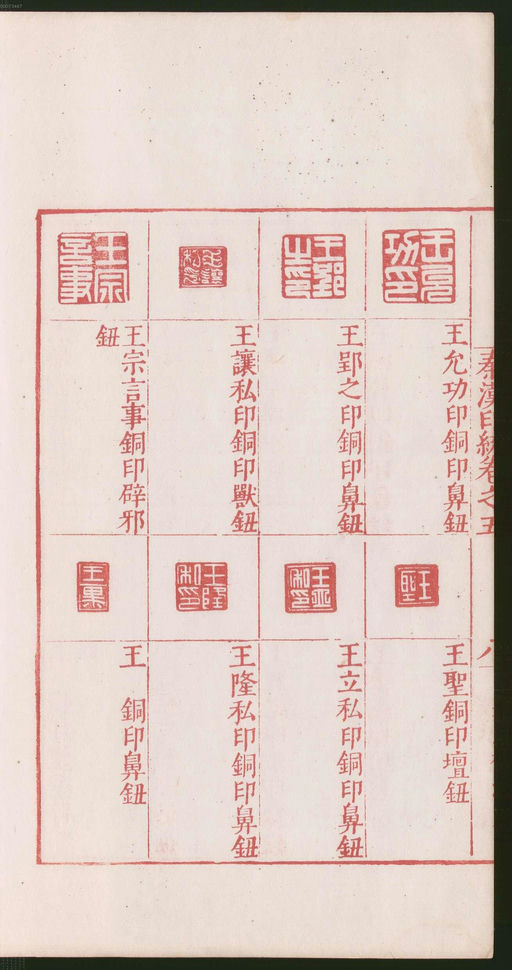 秦漢印統卷之五
八
王允功印銅印鼻鈕
王郢之印銅印鼻鈕
王讓私印銅印獸鈕
王宗言事銅印辟邪
鈕
王聖銅印壇鈕
王立私印銅印鼻鈕
王隆私印銅印鼻鈕
王 銅印鼻鈕